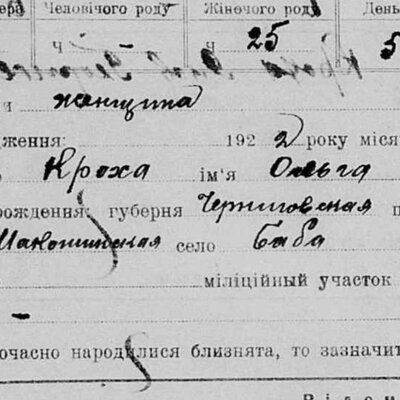 ера Человічого роду Жіночого роду День
ч ч 25 5
я женщина
дження: 1922 року міся
Кроха ім'я Ольга
рождення: губерня Черниговская п
село Баба
міліційный участок
–
очасно народилися близнята, то зазначит